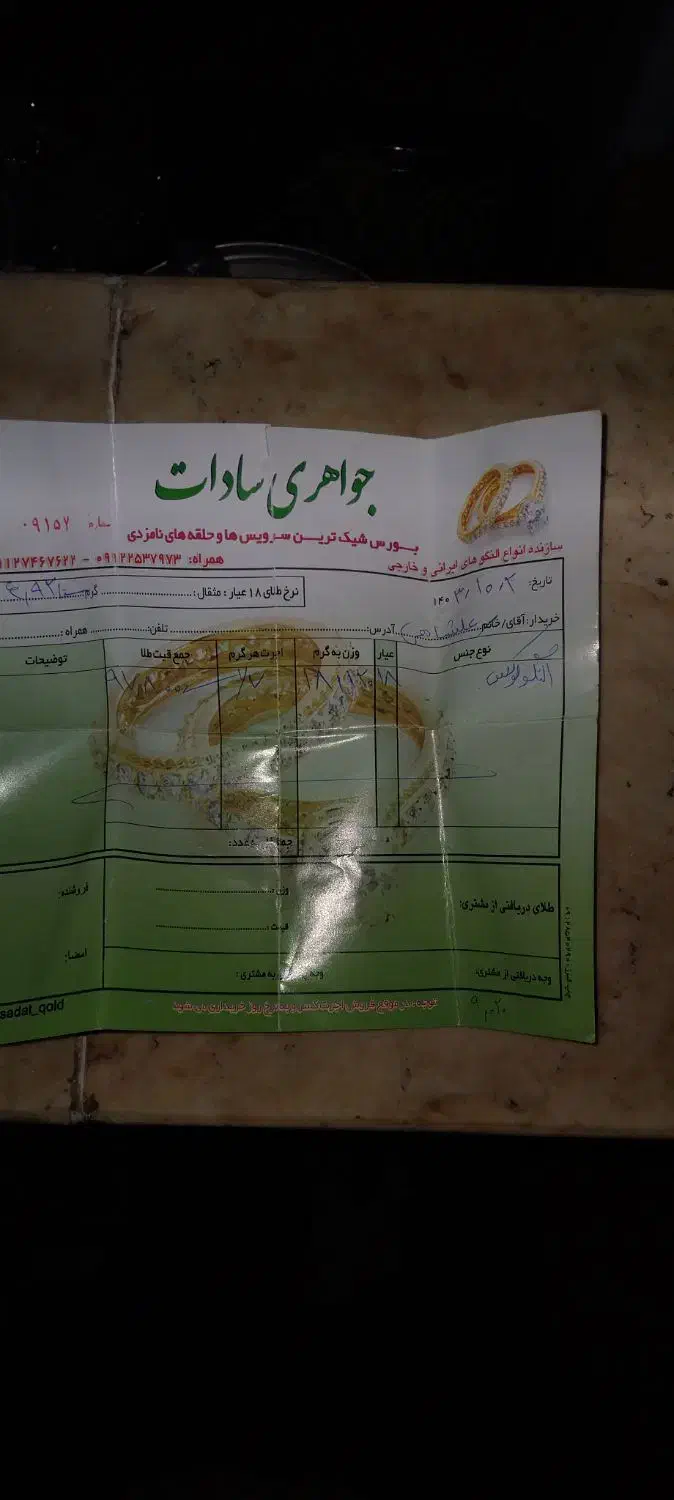 جواهری سادات
بورس شیک ترین سرویس ها و حلقه های نامزدی
سازنده انواع النگوهای ایرانی و خارجی
شماره ۰۹۱۵۲
همراه: ۰۹۱۲۲۵۳۷۹۷۳ - ۱۱۲۷۴۶۷۶۲۲
تاریخ: ۱۴۰۳/۱۰/۲
نرخ طلای ۱۸ عیار: مثقال: گرم
خریدار: آقای/خانم آدرس: تلفن: همراه:
نوع جنس عیار وزن به گرم اجرت هر گرم جمع قیمت طلا توضیحات
النگو ۱۸
طلای دریافتی از مشتری: وزن: فروشنده:
قیمت: امضا:
وجه دریافتی از مشتری: به مشتری:
توجه: در موقع فروش اجرت کسر و به نرخ روز خریداری می شود
sadat_gold